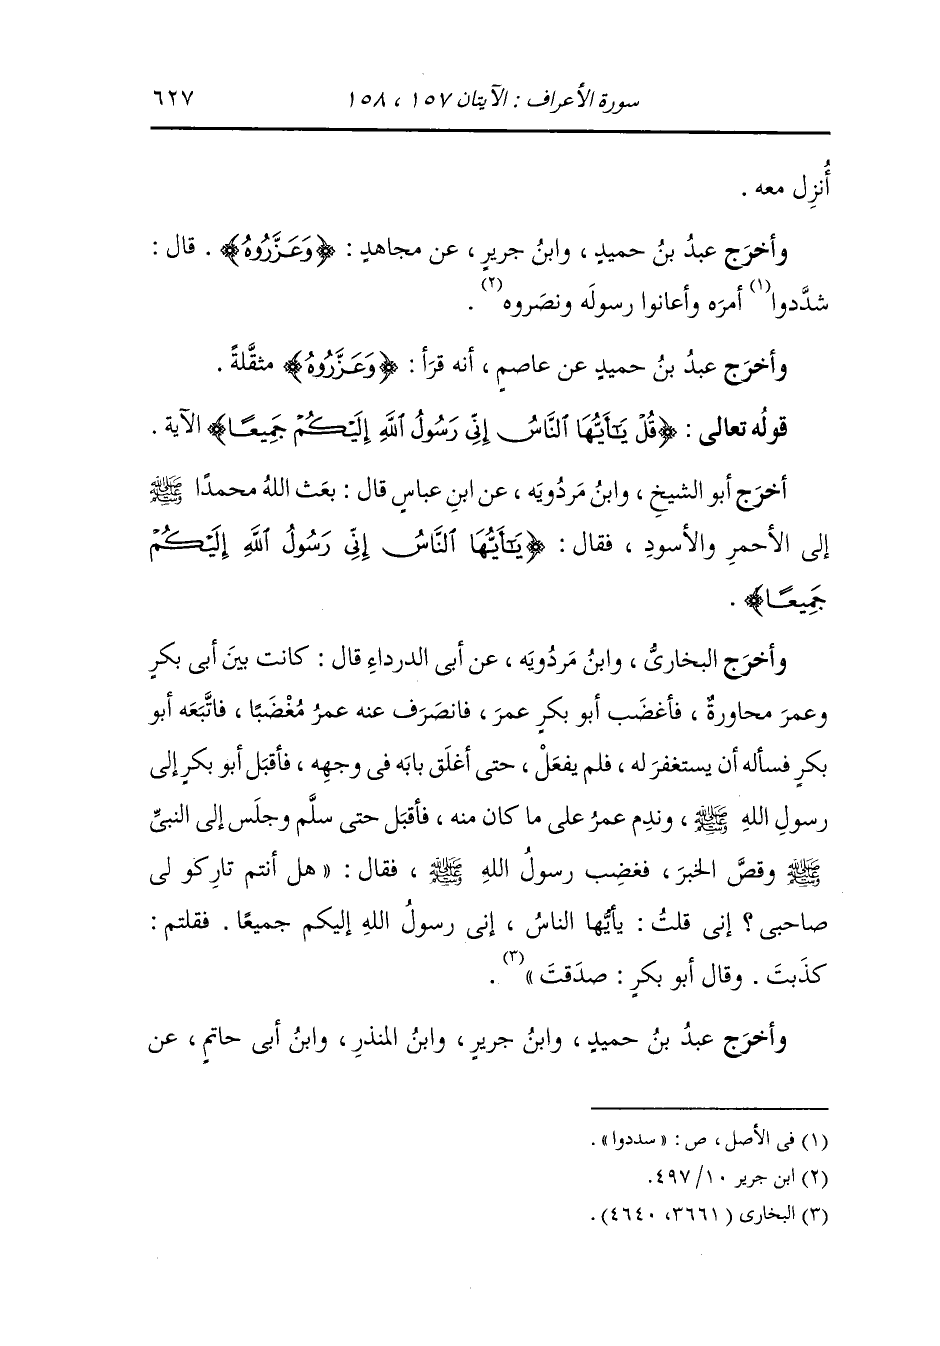 سورة الأعراف : الآيتان ١٥٧ ، ١٥٨ ٦٢٧
أُنزِل معه .
وأخرَج عبدُ بنُ حميدٍ ، وابنُ جريرٍ ، عن مجاهدٍ : ﴿وَعَزَّرُوهُ﴾ . قال :
شدَّدوا(١) أمرَه وأعانوا رسولَه ونصَروه(٢) .
وأخرَج عبدُ بنُ حميدٍ عن عاصمٍ ، أنه قرَأ : ﴿وَعَزَّرُوهُ﴾ مثقَّلةً .
قولُه تعالى : ﴿قُلْ يَـٰٓأَيُّهَا ٱلنَّاسُ إِنِّى رَسُولُ ٱللَّهِ إِلَيْكُمْ جَمِيعًا﴾ الآية .
أخرَج أبو الشيخِ ، وابنُ مَردُويَه ، عن ابنِ عباسٍ قال : بعَث اللهُ محمدًا ﷺ
إلى الأحمرِ والأسودِ ، فقال : ﴿يَـٰٓأَيُّهَا ٱلنَّاسُ إِنِّى رَسُولُ ٱللَّهِ إِلَيْكُمْ
جَمِيعًا﴾ .
وأخرَج البخارىُّ ، وابنُ مَردُويَه ، عن أبى الدرداءِ قال : كانت بينَ أبى بكرٍ
وعمرَ محاورةٌ ، فأغضَب أبو بكرٍ عمرَ ، فانصَرَف عنه عمرُ مُغْضَبًا ، فاتَّبَعَه أبو
بكرٍ فسأله أن يستغفرَ له ، فلم يفعَلْ ، حتى أغلَق بابَه فى وجهِه ، فأقبَل أبو بكرٍ إلى
رسولِ اللهِ ﷺ ، وندِم عمرُ على ما كان منه ، فأقبَل حتى سلَّم وجلَس إلى النبىِّ
ﷺ وقصَّ الخبرَ ، فغضِب رسولُ اللهِ ﷺ ، فقال : « هل أنتم تارِكو لى
صاحبى ؟ إنى قلتُ : يأيُّها الناسُ ، إنى رسولُ اللهِ إليكم جميعًا . فقلتم :
كذَبتَ . وقال أبو بكرٍ : صدَقتَ »(٣) .
وأخرَج عبدُ بنُ حميدٍ ، وابنُ جريرٍ ، وابنُ المنذرِ ، وابنُ أبى حاتمٍ ، عن
(١) فى الأصل ، ص : « سددوا » .
(٢) ابن جرير ١٠/ ٤٩٧.
(٣) البخارى ( ٣٦٦١، ٤٦٤٠) .